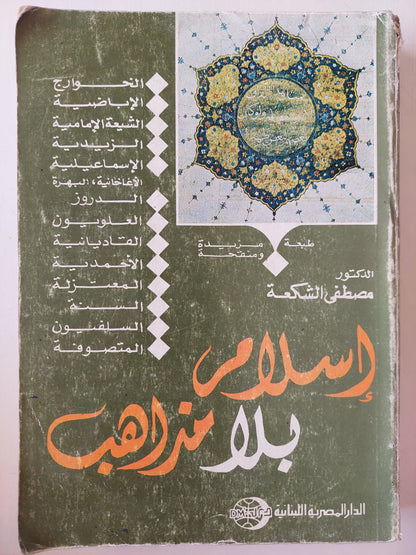 الخوارج
الإباضية
الشيعة الإمامية
الزيدية
الإسماعيلية
الأغاخانية، البهرة
الدروز
العلويون
القاديانية
الأحمدية
المعتزلة
السنة
السلفيون
المتصوفة
طبعة مزيدة
ومنقحة
الدكتور
مصطفى الشكعة
إسلام
بلا مذاهب
الدار المصرية اللبنانية